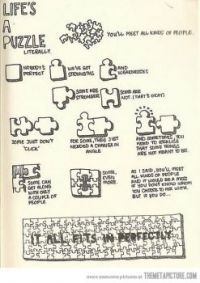 LIFE'S
A
PUZZLE
LITERALLY.
YOU'LL MEET ALL KINDS OF PEOPLE.
NOBODY'S
PERFECT
WE'VE GOT
STRENGTHS
AND
WEAKNESSES
SOME ARE
STRONGER
SOME ARE
NOT. (THAT'S OKAY)
SOME JUST DON'T
"CLICK"
FOR SOME, THEY JUST
NEEDED A CHANGE IN
ANGLE
AND SOMETIMES, YOU
NEED TO REALIZE
THAT SOME THINGS
ARE NOT MEANT TO BE.
SOME CAN
GET ALONG
WITH ONLY
A COUPLE OF
PEOPLE
SOME,
EVEN
MORE.
AS I SAID, YOU'LL MEET
ALL KINDS OF PEOPLE
AND IT WOULD BE A MESS
IF YOU DON'T KNOW WHOM
YOU CHOOSE TO MIX WITH.
BUT IF YOU DO...
IT ALL FITS IN PERFECTLY
THEMETAPICTURE.COM